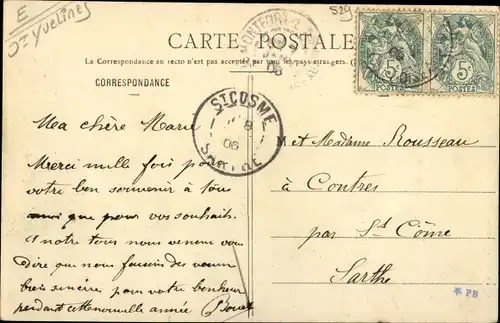 E
Dt Yvelines
529
CARTE POSTALE
La Correspondance au recto n'est pas acceptée par tous les pays étrangers.
CORRESPONDANCE
MONTFORT
08
5c 5c
POSTES POSTES
St COSME
8
08
SARTHE
Ma chère Marie
Merci mille fois pour
votre bon souvenir à tous
ainsi que pour vos souhaits.
A notre tour nous venons vous
dire que nous faisons des vœux
bien sincères pour votre bonheur
pendant cette nouvelle année
M et Madame Rousseau
à Contres
par St Côme
Sarthe
PB